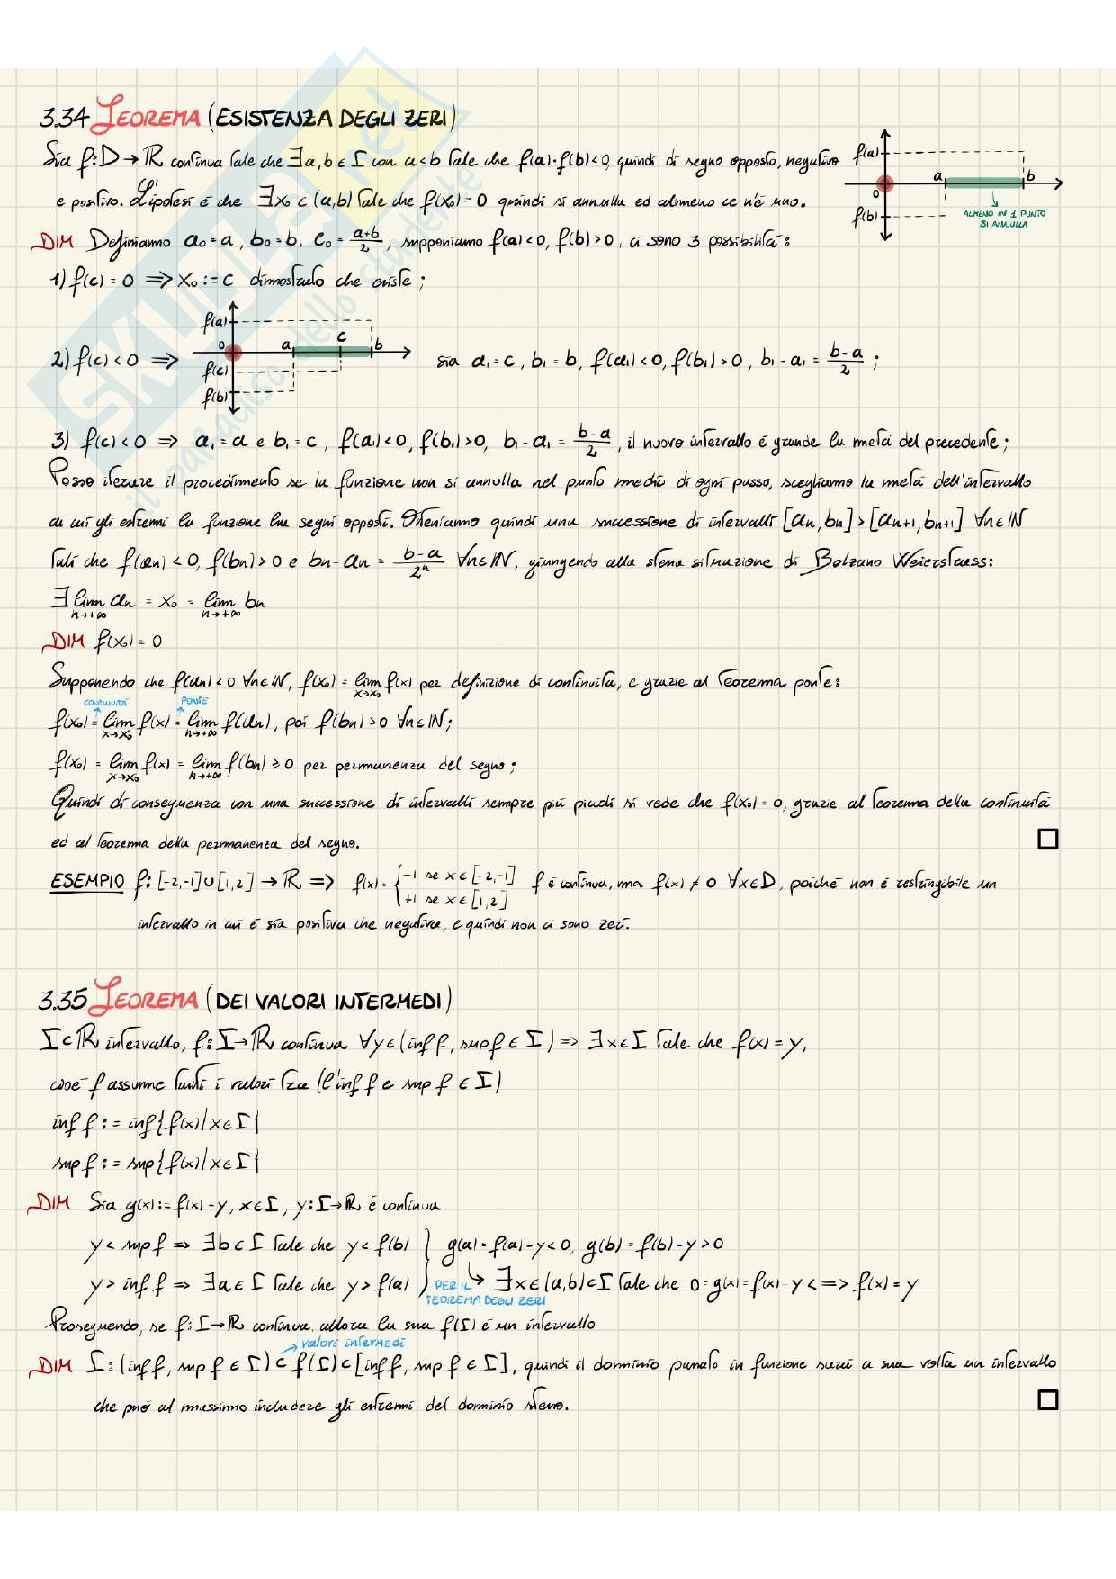 3.34 TEOREMA (ESISTENZA DEGLI ZERI)
Sia f: D → ℝ continua tale che ∃ a, b ∈ I con a < b tale che f(a)·f(b) < 0, quindi di segno opposto, negativo
e positivo. L'ipotesi è che ∃ x₀ ∈ (a,b) tale che f(x₀) = 0 quindi si annulla ed almeno ce n'è uno.
f(a)
a
b
0
f(b)
ALMENO IN 1 PUNTO
SI ANNULLA
DIM Definiamo a₀ = a, b₀ = b, c₀ = (a+b)/2, supponiamo f(a) < 0, f(b) > 0, ci sono 3 possibilità:
1) f(c) = 0 ⟹ x₀ := c dimostrato che esiste;
f(a)
0
a
c
b
f(c)
f(b)
2) f(c) < 0 ⟹ sia a₁ = c, b₁ = b, f(a₁) < 0, f(b₁) > 0, b₁ - a₁ = (b-a)/2;
3) f(c) < 0 ⟹ a₁ = a e b₁ = c, f(a₁) < 0, f(b₁) > 0, b₁ - a₁ = (b-a)/2, il nuovo intervallo è grande la metà del precedente;
Posso iterare il procedimento se la funzione non si annulla nel punto medio di ogni passo, scegliamo la metà dell'intervallo
ai cui gli estremi la funzione ha segni opposti. Otteniamo quindi una successione di intervalli [aₙ, bₙ] > [aₙ₊₁, bₙ₊₁] ∀n∈ℕ
tali che f(aₙ) < 0, f(bₙ) > 0 e bₙ - aₙ = (b-a)/2ⁿ ∀n∈ℕ, giungendo alla stessa situazione di Bolzano Weierstrass:
∃ lim n→+∞ aₙ = x₀ = lim n→+∞ bₙ
DIM f(x₀) = 0
Supponendo che f(aₙ) < 0 ∀n∈ℕ, f(x₀) = lim x→x₀ f(x) per definizione di continuità, e grazie al teorema ponte:
CONTINUITÀ PONTE
f(x₀) = lim x→x₀ f(x) = lim n→+∞ f(aₙ), poi f(bₙ) > 0 ∀n∈ℕ;
f(x₀) = lim x→x₀ f(x) = lim n→+∞ f(bₙ) ≥ 0 per permanenza del segno;
Quindi di conseguenza con una successione di intervalli sempre più piccoli si vede che f(x₀) = 0, grazie al teorema della continuità
ed al teorema della permanenza del segno.
ESEMPIO f: [-2,-1] ∪ [1,2] → ℝ ⟹ f(x) = { -1 se x ∈ [-2,-1] +1 se x ∈ [1,2] f è continua, ma f(x) ≠ 0 ∀x∈D, poiché non è restringibile un
intervallo in cui è sia positiva che negativa, e quindi non ci sono zeri.
3.35 TEOREMA (DEI VALORI INTERMEDI)
I ⊂ ℝ intervallo, f: I → ℝ continua ∀y ∈ (inf f, sup f ∈ I) ⟹ ∃ x ∈ I tale che f(x) = y,
cioè f assume tutti i valori tra (l'inf f e sup f ∈ I)
inf f := inf{f(x) | x ∈ I}
sup f := sup{f(x) | x ∈ I}
DIM Sia g(x) := f(x) - y, x ∈ I, y: I → ℝ è continua
y < sup f ⟹ ∃ b ∈ I tale che y < f(b) } g(a) = f(a) - y < 0, g(b) = f(b) - y > 0
y > inf f ⟹ ∃ a ∈ I tale che y > f(a) PER IL TEOREMA DEGLI ZERI ∃ x ∈ (a,b) ⊂ I tale che 0 = g(x) = f(x) - y <=> f(x) = y
Proseguendo, se f: I → ℝ continua, allora la sua f(I) è un intervallo
VALORI INTERMEDI
DIM I: (inf f, sup f ∈ I) ⊂ f(I) ⊂ [inf f, sup f ∈ I], quindi il dominio passato in funzione sarà a sua volta un intervallo
che può al massimo includere gli estremi del dominio stesso.